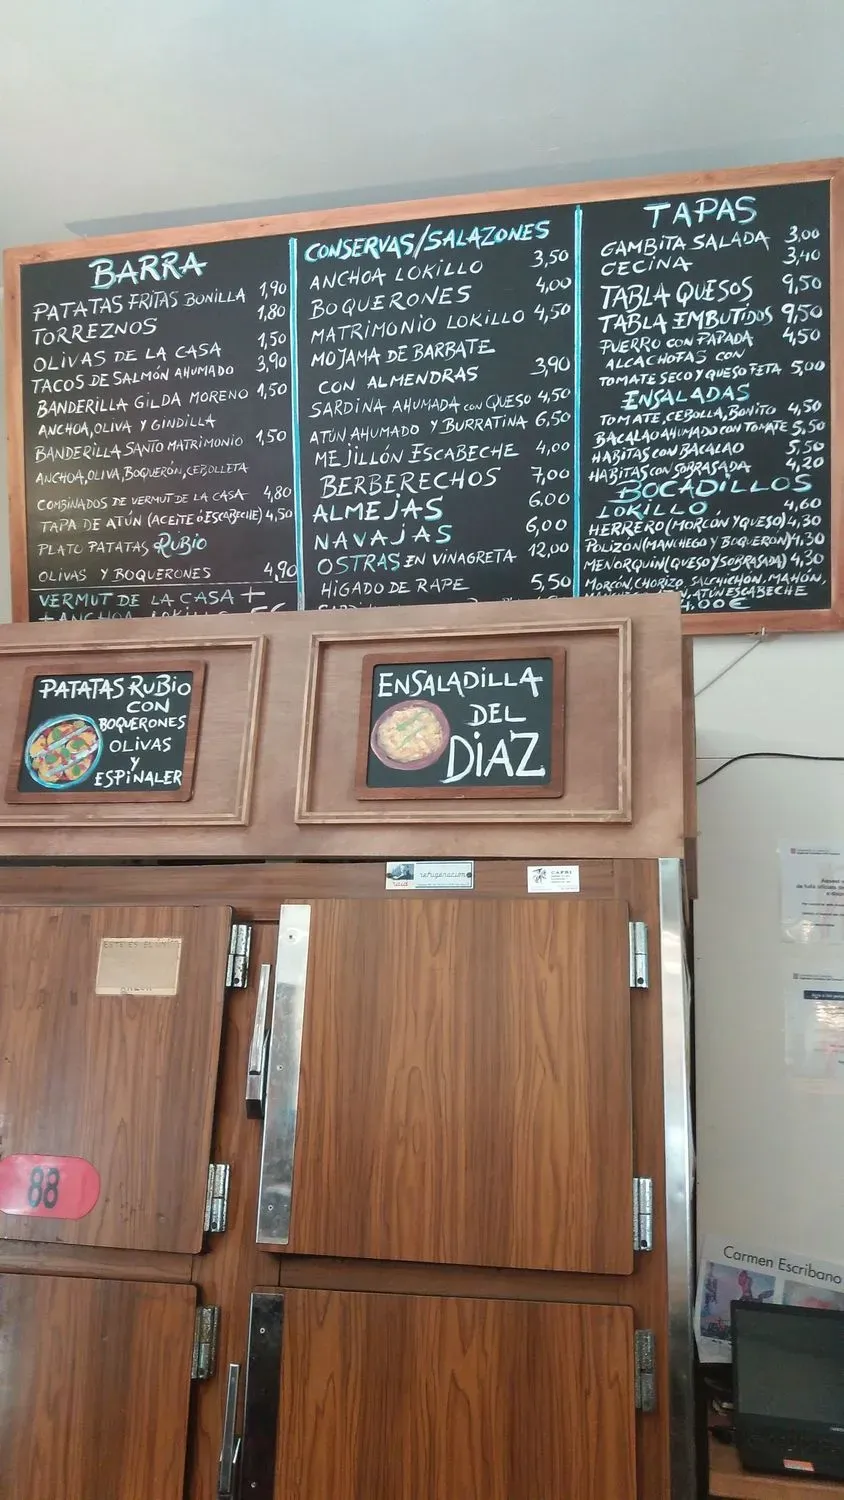 BARRA
PATATAS FRITAS BONILLA 1,90
TORREZNOS 1,80
OLIVAS DE LA CASA 1,50
TACOS DE SALMÓN AHUMADO 3,90
BANDERILLA GILDA MORENO 1,50
ANCHOA, OLIVA Y GINDILLA
BANDERILLA SANTO MATRIMONIO 1,50
ANCHOA, OLIVA, BOQUERÓN, CEBOLLETA
COMBINADOS DE VERMUT DE LA CASA 4,80
TAPA DE ATÚN (ACEITE ó ESCABECHE) 4,50
PLATO PATATAS RUBIO
OLIVAS Y BOQUERONES 4,90
VERMUT DE LA CASA +
+ANCHOA LOKILLO 5€
CONSERVAS/SALAZONES
ANCHOA LOKILLO 3,50
BOQUERONES 4,00
MATRIMONIO LOKILLO 4,50
MOJAMA DE BARBATE
CON ALMENDRAS 3,90
SARDINA AHUMADA CON QUESO 4,50
ATÚN AHUMADO Y BURRATINA 6,50
MEJILLÓN ESCABECHE 4,00
BERBERECHOS 7,00
ALMEJAS 6.00
NAVAJAS 6,00
OSTRAS EN VINAGRETA 12,00
HIGADO DE RAPE 5,50
TAPAS
GAMBITA SALADA 3,00
CECINA 3,40
TABLA QUESOS 9,50
TABLA EMBUTIDOS 9,50
PUERRO CON PAPADA 4,50
ALCACHOFAS CON
TOMATE SECO Y QUESO FETA 5,00
ENSALADAS
TOMATE, CEBOLLA, BONITO 4,50
BACALAO AHUMADO CON TOMATE 5,50
HABITAS CON BACALAO 5,50
HABITAS CON SOBRASADA 4,20
BOCADILLOS
LOKILLO 4,60
HERRERO (MORCÓN Y QUESO) 4,30
POLIZÓN (MANCHEGO Y BOQUERÓN) 4,30
MENORQUIN (QUESO Y SOBRASADA) 4,30
MORCÓN, CHORIZO, SALCHICHÓN, MAHÓN,
ATÚN ESCABECHE
4,00€
PATATAS RUBIO
CON
BOQUERONES
OLIVAS
Y
ESPINALER
ENSALADILLA
DEL
DIAZ
refrigeracion
CAPRI
ESTE ES EL UNICO
88
Carmen Escribano